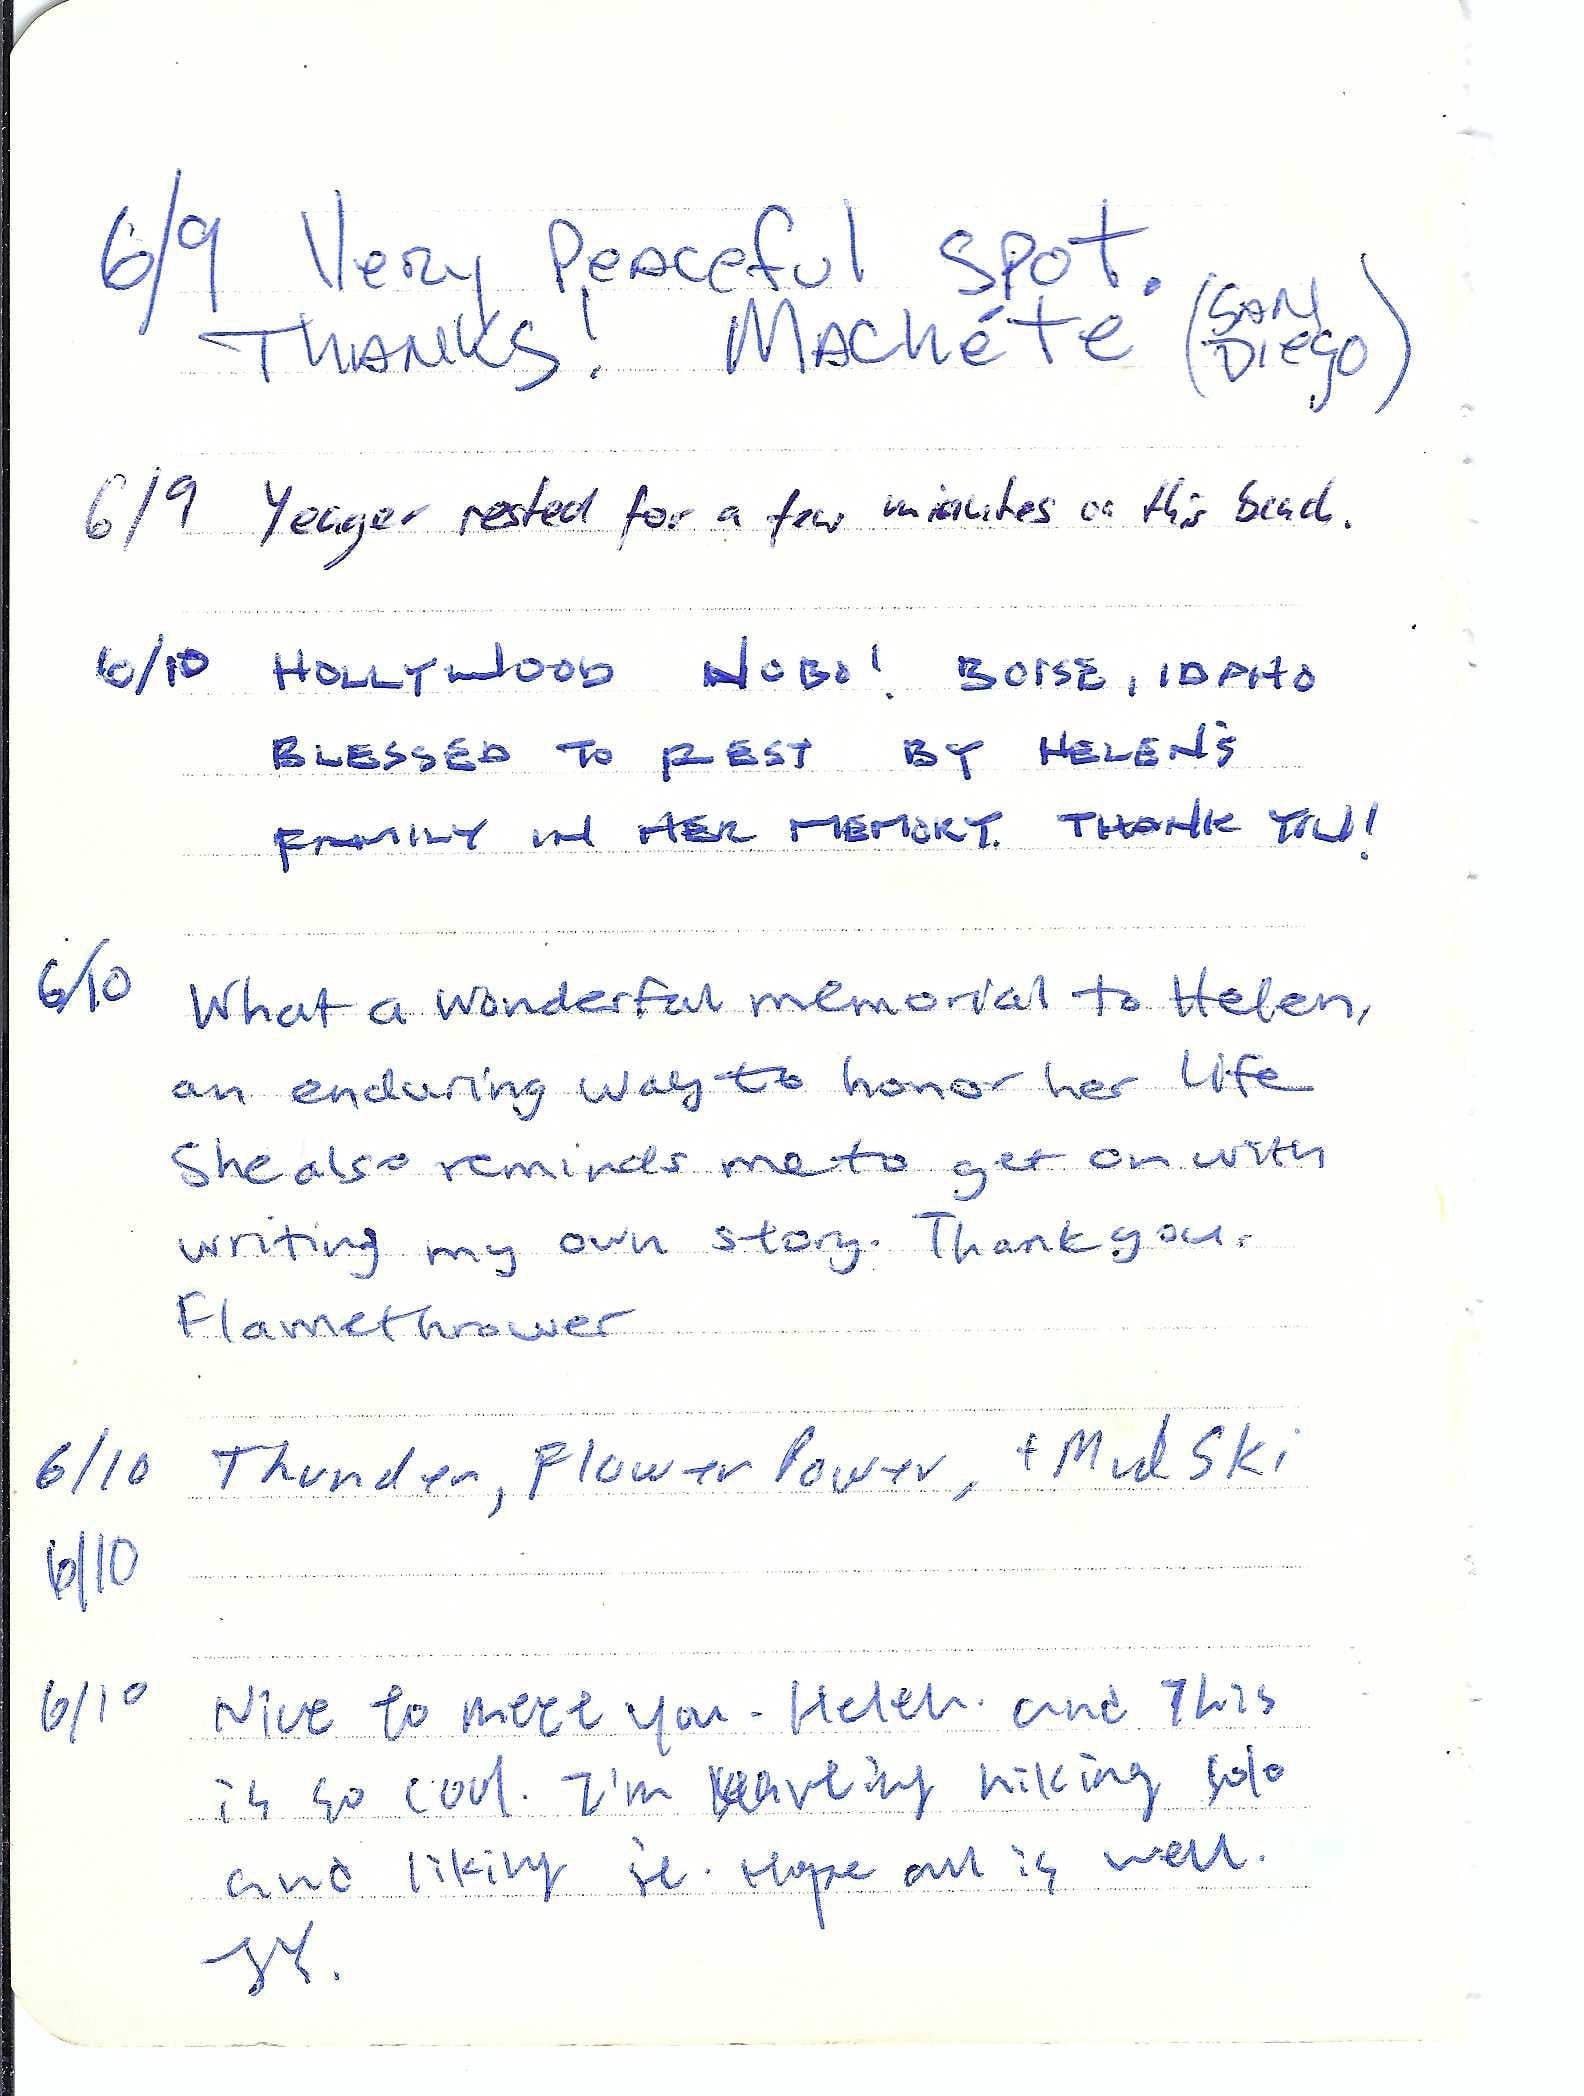 6/9 Very Peaceful spot.
THANKS! Machéte (SAN
DIEGO)
6/9 Yeager rested for a few minutes on this bench.
6/10 HOLLYWOOD NOBO! BOISE, IDAHO
BLESSED TO REST BY HELEN'S
FAMILY IN HER MEMORY. THANK YOU!
6/10 What a wonderful memorial to Helen,
an enduring way to honor her life
She also reminds me to get on with
writing my own story. Thank you.
Flamethrower
6/10 Thunder, Flower Power, + Mud Ski
6/10
6/10 Nice to meet you - Helen. and This
is so cool. I'm hiking solo
and liking it. Hope all is well.